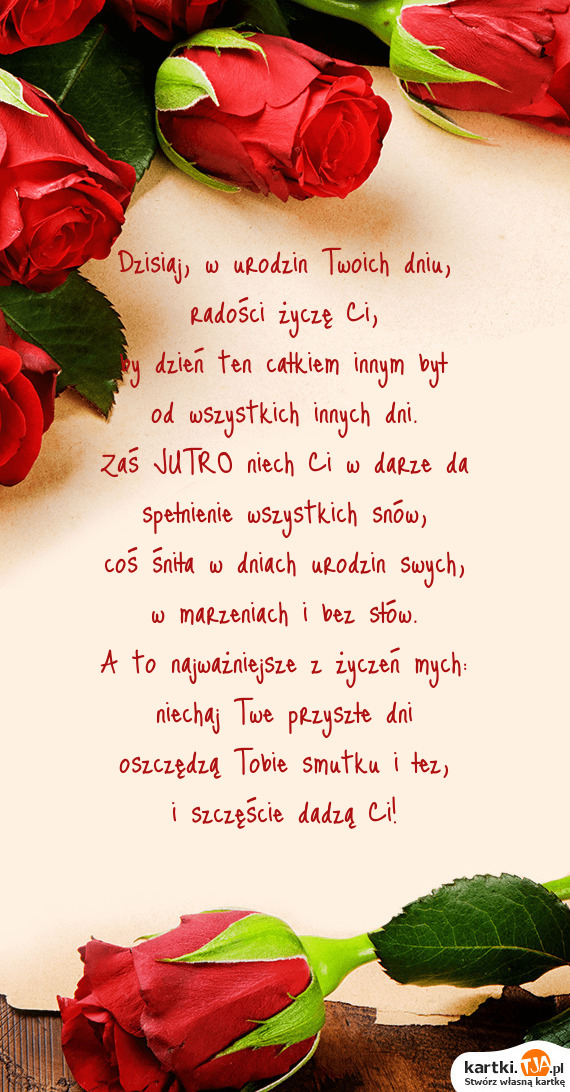 Dzisiaj, w urodzin Twoich dniu,
radości życzę Ci,
by dzień ten całkiem innym był
od wszystkich innych dni.
Zaś JUTRO niech Ci w darze da
spełnienie wszystkich snów,
coś śniła w dniach urodzin swych,
w marzeniach i bez słów.
A to najważniejsze z życzeń mych:
niechaj Twe przyszłe dni
oszczędzą Tobie smutku i łez,
i szczęście dadzą Ci!
kartki.TJA.pl
Stwórz własną kartkę